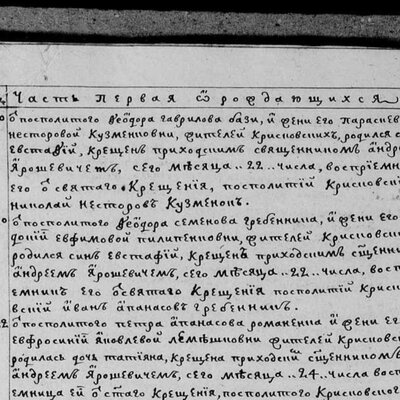 Часть первая ѿ рождающихся
Ѹ посполитого Ѳеѡдора гаврилова бази, и жени его параскев
несторовой Кузменковни, жителей Крисковскихъ, родился с
Евстафїй, крещенъ приходскимъ священникомъ андр
Ярошевичемъ, сего мѣсяца .. 22 .. числа, воспрїемн
его ѿ святаго Крещенїя, посполитїй Крисковскї
николай несторовъ Кузменокъ.
Ѹ посполитого Ѳеѡдора семенова гребенника, и жени его
донїй Евфимовой пилипенковни, жителей Крисковс
родился синъ Евстафїй, крещенъ приходскимъ сщ҃енни
андреемъ Ярошевичемъ, сего мѣсяца .. 22 .. числа, восп
емникъ его ѿ святаго Крещенїя посполитїй Криск
вскїй иванъ апанасовъ гребенникъ.
Ѹ посполитого петра апанасова романенка и жени ег
Евфросинїй Яковлевой лемѣшковни жителей Крисковс
родилась дочь татїяна, крещена приходскимъ сщ҃енникомъ
андреемъ Ярошевичемъ, сего мѣсяца .. 24 .. числа восп
емница ей ѿ с҃таго Крещенїя, посполитого Крисковског